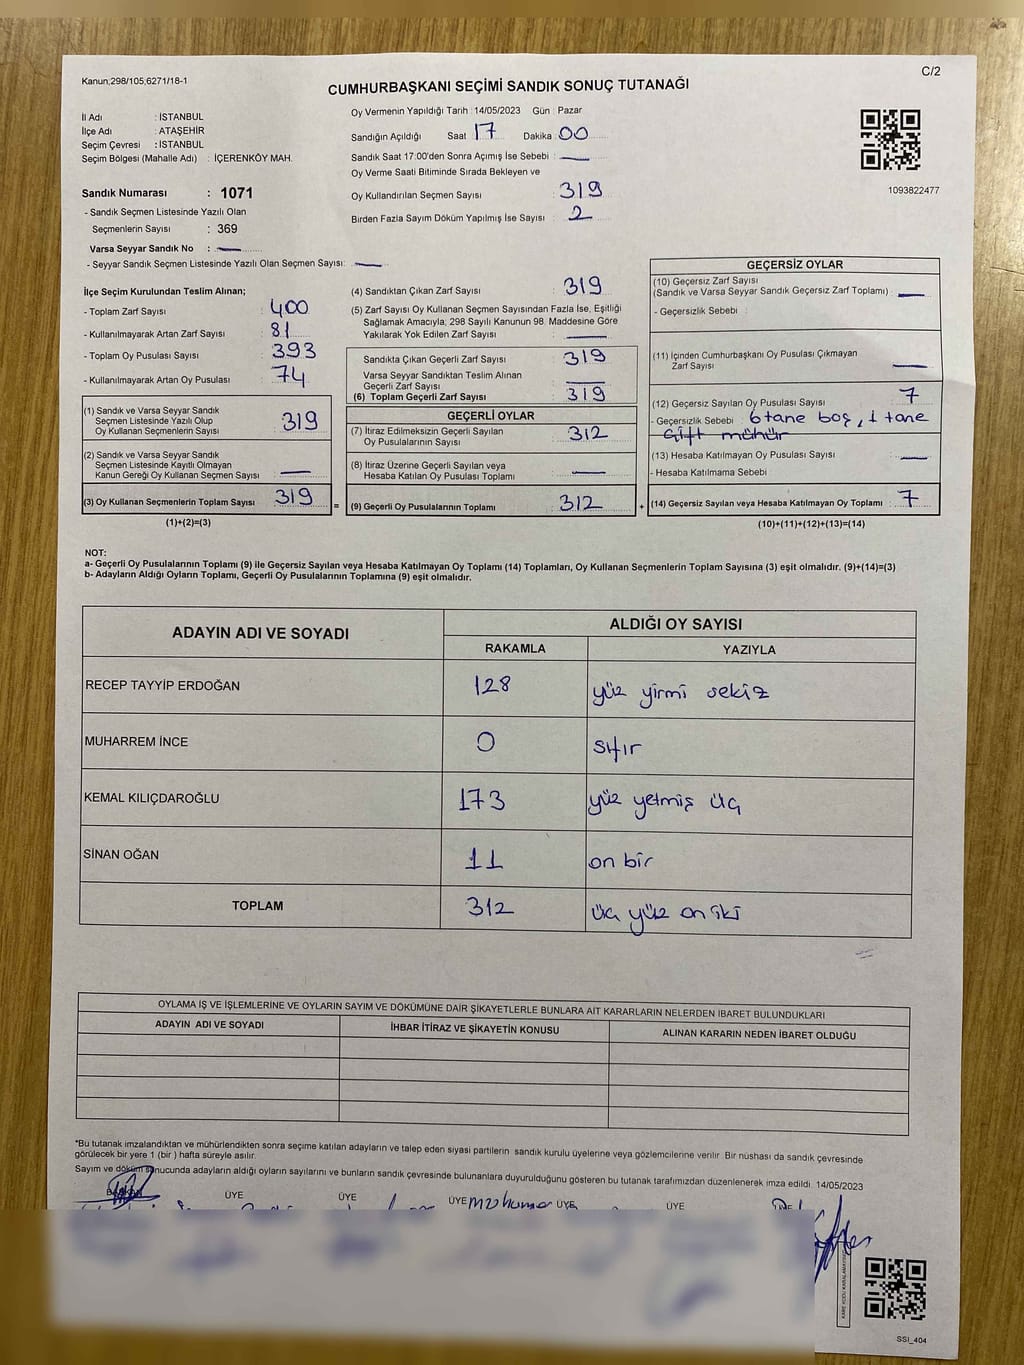 Kanun;298/105,6271/18-1
C/2
CUMHURBAŞKANI SEÇİMİ SANDIK SONUÇ TUTANAĞI
İl Adı : İSTANBUL
İlçe Adı : ATAŞEHİR
Seçim Çevresi : İSTANBUL
Seçim Bölgesi (Mahalle Adı) : İÇERENKÖY MAH.
Sandık Numarası : 1071
- Sandık Seçmen Listesinde Yazılı Olan
Seçmenlerin Sayısı : 369
Varsa Seyyar Sandık No : —
- Seyyar Sandık Seçmen Listesinde Yazılı Olan Seçmen Sayısı: —
Oy Vermenin Yapıldığı Tarih : 14/05/2023 Gün : Pazar
Sandığın Açıldığı Saat 17 Dakika 00
Sandık Saat 17:00'den Sonra Açımış İse Sebebi : —
Oy Verme Saati Bitiminde Sırada Bekleyen ve
Oy Kullandırılan Seçmen Sayısı : 319
Birden Fazla Sayım Döküm Yapılmış İse Sayısı : 2
1093822477
İlçe Seçim Kurulundan Teslim Alınan;
- Toplam Zarf Sayısı : 400
- Kullanılmayarak Artan Zarf Sayısı : 81
- Toplam Oy Pusulası Sayısı : 393
- Kullanılmayarak Artan Oy Pusulası : 74
(1) Sandık ve Varsa Seyyar Sandık
Seçmen Listesinde Yazılı Olup
Oy Kullanan Seçmenlerin Sayısı : 319
(2) Sandık ve Varsa Seyyar Sandık
Seçmen Listesinde Kayıtlı Olmayan
Kanun Gereği Oy Kullanan Seçmen Sayısı : —
(3) Oy Kullanan Seçmenlerin Toplam Sayısı : 319 =
(1)+(2)=(3)
(4) Sandıktan Çıkan Zarf Sayısı : 319
(5) Zarf Sayısı Oy Kullanan Seçmen Sayısından Fazla İse, Eşitliği
Sağlamak Amacıyla; 298 Sayılı Kanunun 98. Maddesine Göre
Yakılarak Yok Edilen Zarf Sayısı : —
Sandıkta Çıkan Geçerli Zarf Sayısı : 319
Varsa Seyyar Sandıktan Teslim Alınan
Geçerli Zarf Sayısı : —
(6) Toplam Geçerli Zarf Sayısı : 319
GEÇERLİ OYLAR
(7) İtiraz Edilmeksizin Geçerli Sayılan
Oy Pusulalarının Sayısı : 312
(8) İtiraz Üzerine Geçerli Sayılan veya
Hesaba Katılan Oy Pusulası Toplamı : —
(9) Geçerli Oy Pusulalarının Toplamı : 312 +
GEÇERSİZ OYLAR
(10) Geçersiz Zarf Sayısı
(Sandık ve Varsa Seyyar Sandık Geçersiz Zarf Toplamı) : —
- Geçersizlik Sebebi :
(11) İçinden Cumhurbaşkanı Oy Pusulası Çıkmayan
Zarf Sayısı : —
(12) Geçersiz Sayılan Oy Pusulası Sayısı : 7
- Geçersizlik Sebebi : 6 tane boş, 1 tane
çift mühür
(13) Hesaba Katılmayan Oy Pusulası Sayısı : —
- Hesaba Katılmama Sebebi :
(14) Geçersiz Sayılan veya Hesaba Katılmayan Oy Toplamı : 7
(10)+(11)+(12)+(13)=(14)
NOT:
a- Geçerli Oy Pusulalarının Toplamı (9) ile Geçersiz Sayılan veya Hesaba Katılmayan Oy Toplamı (14) Toplamları, Oy Kullanan Seçmenlerin Toplam Sayısına (3) eşit olmalıdır. (9)+(14)=(3)
b- Adayların Aldığı Oyların Toplamı, Geçerli Oy Pusulalarının Toplamına (9) eşit olmalıdır.
ADAYIN ADI VE SOYADI
ALDIĞI OY SAYISI
RAKAMLA YAZIYLA
RECEP TAYYİP ERDOĞAN 128 yüz yirmi sekiz
MUHARREM İNCE 0 sıfır
KEMAL KILIÇDAROĞLU 173 yüz yetmiş üç
SİNAN OĞAN 11 on bir
TOPLAM 312 üç yüz on iki
OYLAMA İŞ VE İŞLEMLERİNE VE OYLARIN SAYIM VE DÖKÜMÜNE DAİR ŞİKAYETLERLE BUNLARA AİT KARARLARIN NELERDEN İBARET BULUNDUKLARI
ADAYIN ADI VE SOYADI İHBAR İTİRAZ VE ŞİKAYETİN KONUSU ALINAN KARARIN NEDEN İBARET OLDUĞU
*Bu tutanak imzalandıktan ve mühürlendikten sonra seçime katılan adayların ve talep eden siyasi partilerin sandık kurulu üyelerine veya gözlemcilerine verilir. Bir nüshası da sandık çevresinde
görülecek bir yere 1 (bir ) hafta süreyle asılır.
Sayım ve döküm sonucunda adayların aldığı oyların sayılarını ve bunların sandık çevresinde bulunanlara duyurulduğunu gösteren bu tutanak tarafımızdan düzenlenerek imza edildi. 14/05/2023
BAŞKAN ÜYE ÜYE ÜYE ÜYE ÜYE ÜYE
SSI_404